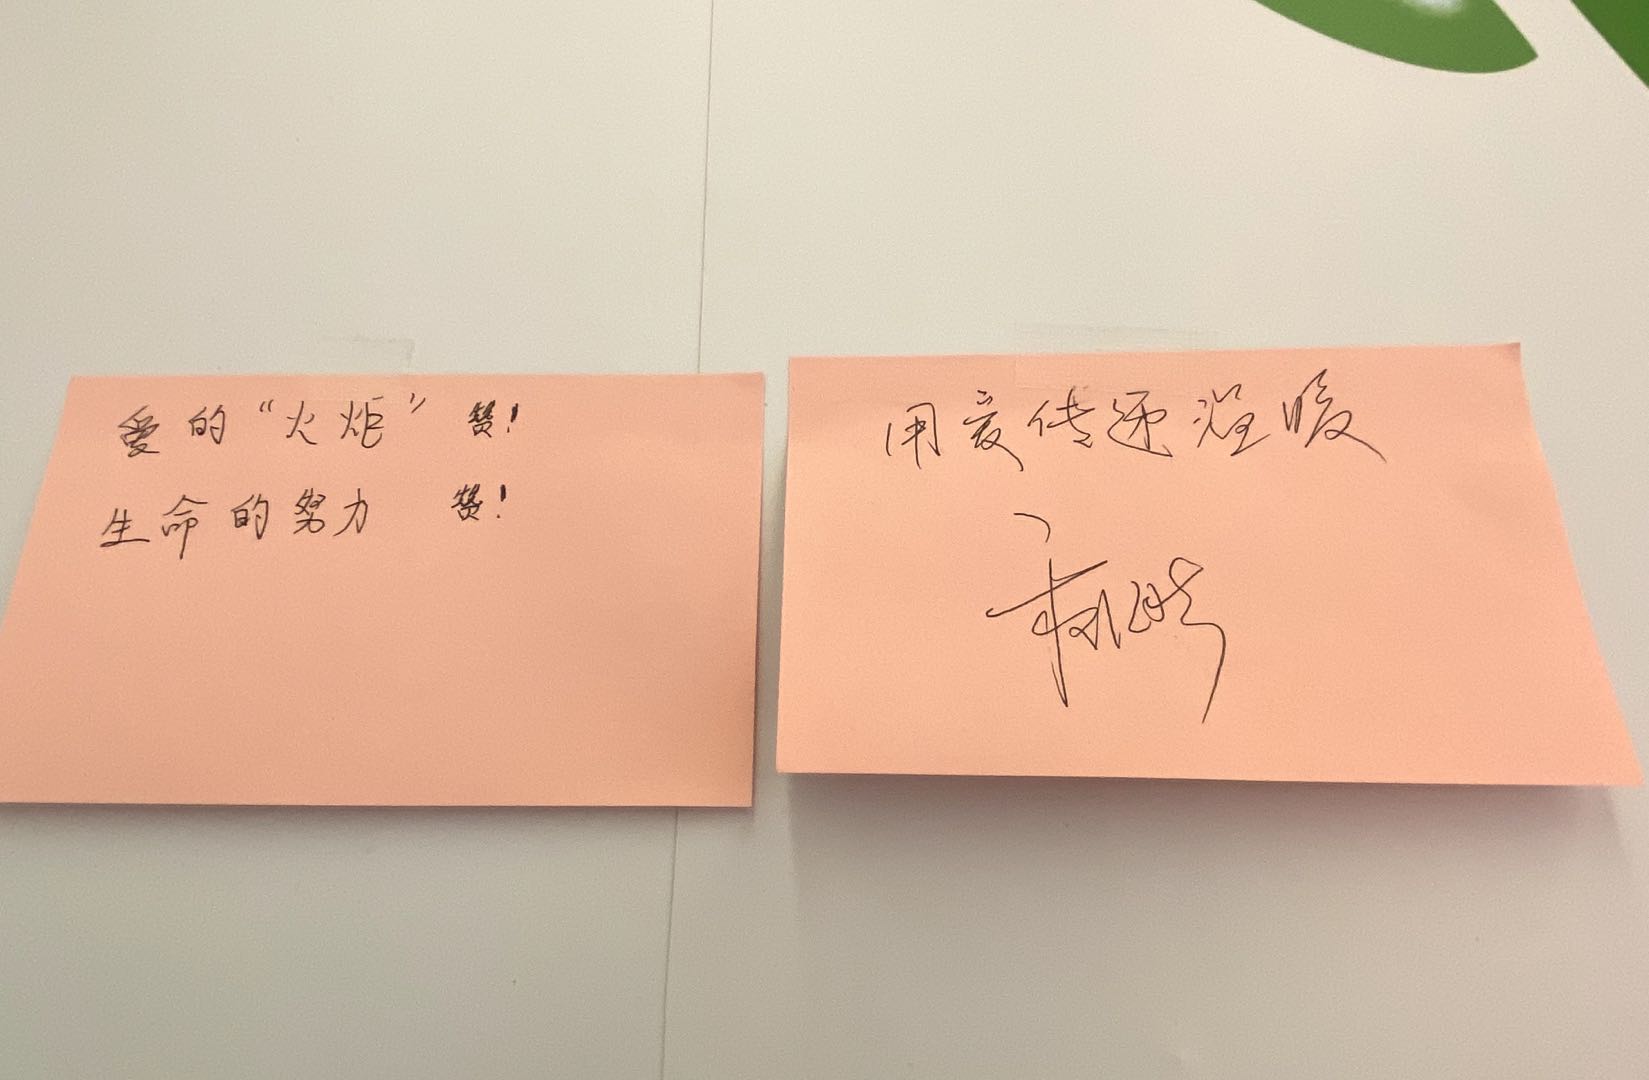 爱的“火炬” 赞!
生命的努力 赞!
用爱传递温暖